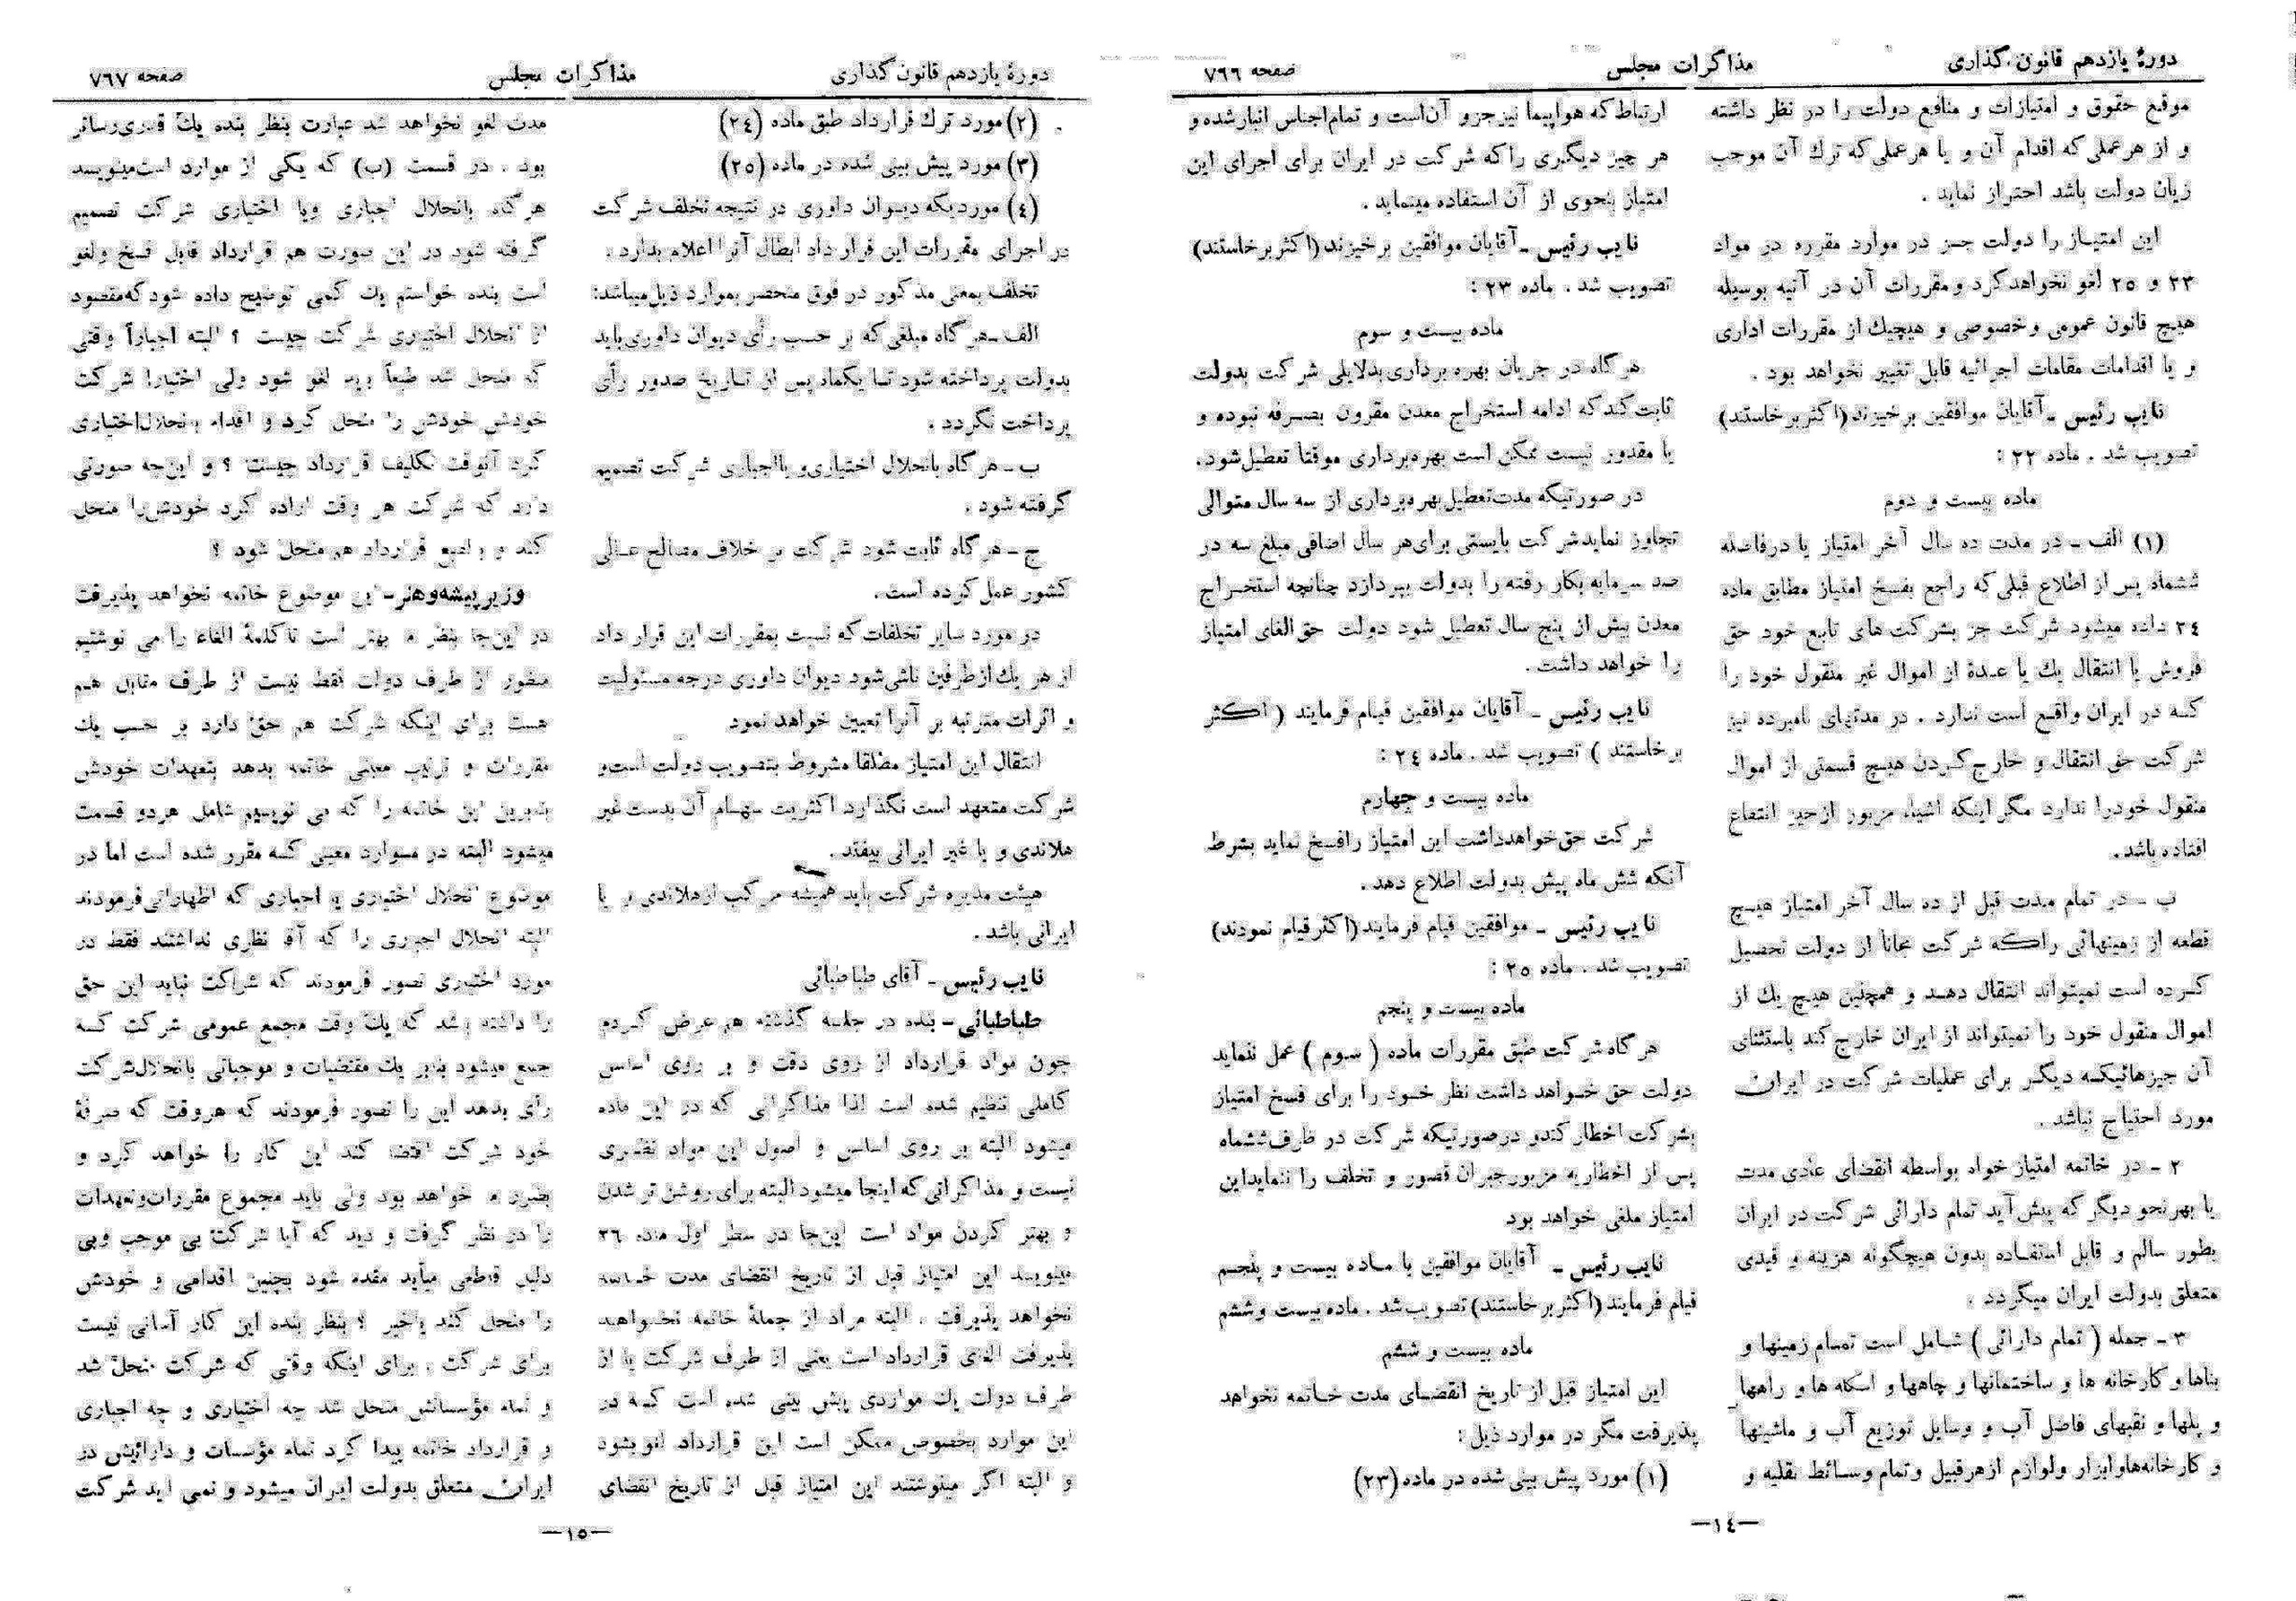 دورهٔ یازدهم قانون گذاری
مذاکرات مجلس
صفحه ۷۶۶
موقع حقوق و امتیازات و منافع دولت را در نظر داشته
و از هر عملی که اقدام آن و یا هر عملی که ترك آن موجب
زیان دولت باشد احتراز نماید .
این امتیـاز را دولت جـز در موارد مقرره در مواد
۲۳ و ۲۵ لغو نخواهد کرد و مقررات آن در آتیه بوسیله
هیچ قانون عمومی و خصوصی و هیچیك از مقررات اداری
و یا اقدامات مقامات اجرائیه قابل تغییر نخواهد بود .
نایب رئیس ـ آقایان موافقین برخیزند (اکثر برخاستند)
تصویب شد . ماده ۲۲ :
ماده بیست و دوم
(۱) الف ـ در مدت ده سال آخر امتیاز یا در فاصله
ششماه پس از اطلاع قبلی که راجع بفسخ امتیاز مطابق ماده
۲٤ داده میشود شرکت جز بشرکت های تابع خود حق
فروش یا انتقال یك یا عـدهٔ از اموال غیر منقول خود را
کـه در ایران واقـع است ندارد . در مدتهای نامبرده نیز
شرکت حق انتقال و خارج کـردن هیـچ قسمتی از اموال
منقول خود را ندارد مگر اینکه اشیاء مزبور از حیز انتفاع
افتاده باشد.
ب ـ در تمام مدت قبل از ده سال آخر امتیاز هیـچ
قطعه از زمینهائی را کـه شرکت مجاناً از دولت تحصیل
کـرده است نمیتواند انتقال دهـد و همچنین هیـچ یك از
اموال منقول خود را نمیتواند از ایران خارج کند باستثنای
آن چیزهائیکـه دیگـر برای عملیات شرکت در ایران
مورد احتیاج نباشد .
۲ ـ در خاتمه امتیاز خواه بواسطه انقضای عادی مدت
یا بهر نحو دیگر که پیش آید تمام دارائی شرکت در ایران
بطور سالم و قابل استفـاده بدون هیچگونه هزینه و قیدی
متعلق بدولت ایران میگردد .
۳ ـ جمله ( تمام دارائی ) شـامل است تمـام زمینها و
بناها و کارخانه ها و ساختمانها و چاهها و اسکله ها و راهها
و پلها و نقبهای فاضل آب و وسایل توزیع آب و ماشینها
و کارخانه‌ها و ابزار و لوازم از هر قبیل و تمام وسـائط نقلیه و
ارتباط که هواپیما نیز جزو آن است و تمام اجناس انبار شده و
هر چیز دیگری را که شرکت در ایران برای اجرای این
امتیاز بنحوی از آن استفاده مینماید .
نایب رئیس ـ آقایان موافقین برخیزند (اکثر برخاستند)
تصویب شد . ماده ۲۳ :
ماده بیست و سوم
هر گاه در جریان بهره برداری بدلایلی شرکت بدولت
ثابت کند که ادامه استخراج معدن مقرون بصـرفه نبوده و
یا مقدور نیست ممکن است بهره‌برداری موقتاً تعطیل شود.
در صورتیکه مدت تعطیل بهره‌برداری از سه سال متوالی
تجاوز نماید شرکت بایستی برای هر سال اضافی مبلغ سه در
صد سرمایه بکار رفته را بدولت بپردازد چنانچه استخـراج
معدن بیش از پنج سال تعطیل شود دولت حق الغای امتیاز
را خواهد داشت.
نایب رئیس ـ آقایان موافقین قیـام فرمایند ( اکـثر
برخاستند ) تصویب شد . ماده ۲٤ :
ماده بیست و چهارم
شرکت حق خواهد داشت این امتیاز را فسخ نماید بشرط
آنکه شش ماه پیش بدولت اطلاع دهد.
نایب رئیس ـ موافقین قیام فرمایند (اکثر قیام نمودند)
تصویب شد . ماده ۲۵ :
ماده بیست و پنجم
هر گاه شرکت طبق مقررات ماده ( سوم ) عمل ننماید
دولت حق خـواهد داشت نظر خـود را برای فسخ امتیاز
بشرکت اخطار کند و در صورتیکه شرکت در ظرف ششماه
پس از اخطاریه مزبور جبران قصور و تخلف را ننماید این
امتیاز ملغی خواهد بود
نایب رئیس ـ آقایان موافقین با مـاده بیست و پنجـم
قیام فرمایند (اکثر برخاستند) تصویب شد . ماده بیست و ششم
ماده بیست و ششم
این امتیاز قبل از تاریخ انقضـای مدت خـاتمه نخواهد
پذیرفت مگر در موارد ذیل :
(۱) مورد پیش بینی شده در ماده (۲۳)
ـ۱٤ـ
دورهٔ یازدهم قانون گذاری
مذاکرات مجلس
صفحه ۷۶۷
(۲) مورد ترك قرارداد طبق ماده (۲٤)
(۳) مورد پیش بینی شده در ماده (۲۵)
(٤) موردیکه دیـوان داوری در نتیجه تخلف شرکت
در اجرای مقررات این قرارداد ابطال آنرا اعلام بدارد .
تخلف بمعنی مذکور در فوق منحصر بموارد ذیل میباشد:
الف ـ هر گاه مبلغی که بر حسب رأی دیوان داوری باید
بدولت پرداخته شود تـا یکماه پس از تـاریخ صدور رأی
پرداخت نگردد .
ب ـ هر گاه بانحلال اختیاری و یا اجباری شرکت تصمیم
گرفته شود .
ج ـ هر گاه ثابت شود شرکت بر خلاف مصالح عـالی
کشور عمل کرده است.
در مورد سایر تخلفات که نسبت بمقررات این قرار داد
از هر یك از طرفین ناشی شود دیوان داوری درجه مسئولیت
و اثرات مترتبه بر آنرا تعیین خواهد نمود
انتقال این امتیاز مطلقاً مشروط بتصویب دولت است و
شرکت متعهد است نگذارد اکثریت سهـام آن بدست غیر
هلاندی و یا غیر ایرانی بیفتد .
هیئت مدیره شرکت باید همیشه مرکب از هلاندی و یا
ایرانی باشد .
نایب رئیس ـ آقای طباطبائی
طباطبائی ـ بنده در جلسه گذشته هم عرض کـردم
چون مواد قرارداد از روی دقت و بر روی اساس
کاملی تنظیم شده است لذا مذاکراتی که در این ماده
میشود البته بر روی اساس و اصول این مواد نظـری
نیست و مذاکراتی که اینجا میشود البته برای روشن تر شدن
و بهتر کردن مواد است این‌جا در سطر اول ماده ۲۶
مینویسد این امتیاز قبل از تاریخ انقضای مدت خـاتمه
نخواهد پذیرفت . البته مراد از جملهٔ خاتمه نخـواهـد
پذیرفت الغای قرارداد است یعنی از طرف شرکت یا از
طرف دولت یك مواردی پیش بینی شده است کـه در
این موارد بخصوص ممکن است این قرارداد لغو بشود
و البته اگر مینوشتند این امتیاز قبل از تاریخ انقضای
مدت لغو نخواهد شد عبارت بنظر بنده یك قدری رساتر
بود . در قسمت (ب) که یکی از موارد است مینویسد
هرگاه بانحلال اجباری ویا اختیاری شرکت تصمیم
گرفته شود در این صورت هم قرارداد قابل فسخ و لغو
است بنده خواستم یك کمی توضیح داده شود که مقصود
از انحلال اختیاری شرکت چیست ؟ البته اجباراً وقتی
که منحل شد طبعاً باید لغو شود ولی اختیاراً شرکت
خودش خودش را منحل کرد و اقدام بانحلال اختیاری
کرد آنوقت تکلیف قرارداد چیست ؟ و این چه صورتی
دارد که شرکت هر وقت اراده کرد خودش را منحل
کند و بالتبع قرارداد هم منحل شود ؟
وزیر پیشه و هنر ـ این موضوع خاتمه نخواهد پذیرفت
در این‌جا بنظر ما بهتر است تا کلمهٔ الغاء را می نوشتیم
منظور از طرف دولت فقط نیست از طرف مقابل هـم
هست برای اینکه شرکت هم حق دارد بر حسب یك
مقررات و ترتیب معینی خاتمه بدهد بتعهدات خودش
بنابراین این خاتمه را که می نویسیم شامل هردو قسمت
میشود البته در مـوارد معینی کـه مقرر شده است اما در
موضوع انحلال اختیاری یا اجباری که اظهاراتی فرمودند
البته انحلال اجباری را که آقا نظری نداشتند فقط در
مورد اختیاری تصور فرمودند که شرکت نباید این حق
را داشته باشد که یك وقت مجمع عمومی شرکت کـه
جمع میشود بنابر یك مقتضیات و موجباتی بانحلال شرکت
رأی بدهد این را تصور فرمودند که هروقت که صرفهٔ
خود شرکت اقتضا کند این کار را خواهد کرد و
بضرر ما خواهد بود ولی باید مجموع مقررات و تعهدات
را در نظر گرفت و دید که آیا شرکت بی موجب و بی
دلیل قاطعی میآید مقدم شود بچنین اقدامی و خودش
را منحل کند یا خیر ؟ بنظر بنده این کار آسانی نیست
برای شرکت . برای اینکه وقتی که شرکت منحل شد
و تمام مؤسساتش منحل شد چه اختیاری و چه اجباری
و قرارداد خاتمه پیدا کرد تمام مؤسسات و دارائیش در
ایران متعلق بدولت ایران میشود و نمی آید شرکت
ـ۱۵ـ